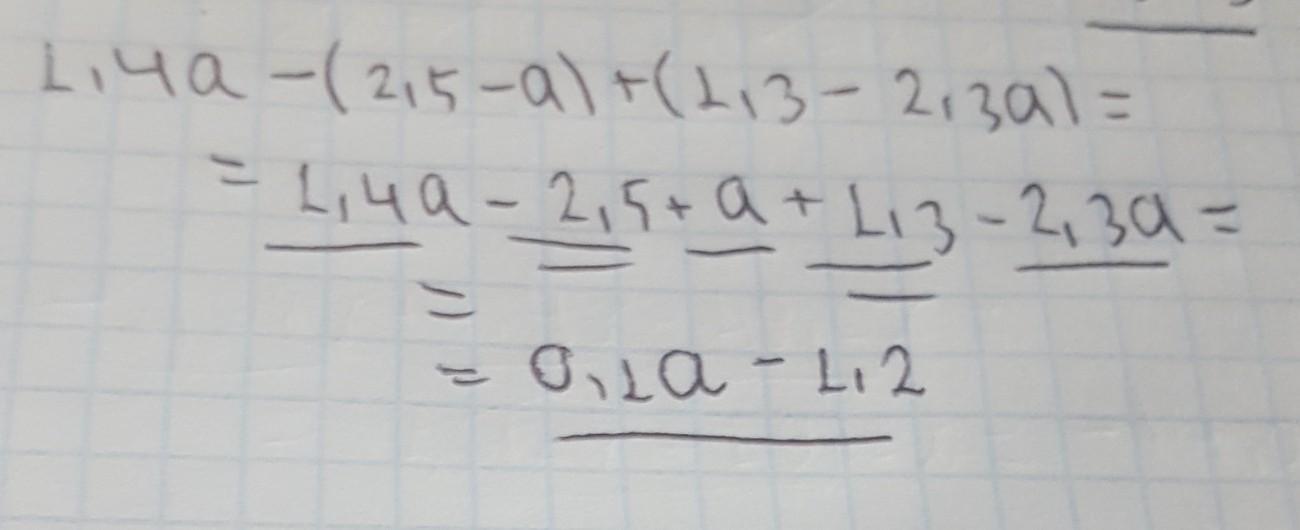 1,4a-(2,5-a)+(1,3-2,3a)=
=1,4a-2,5+a+1,3-2,3a=
=
=0,1a-1,2